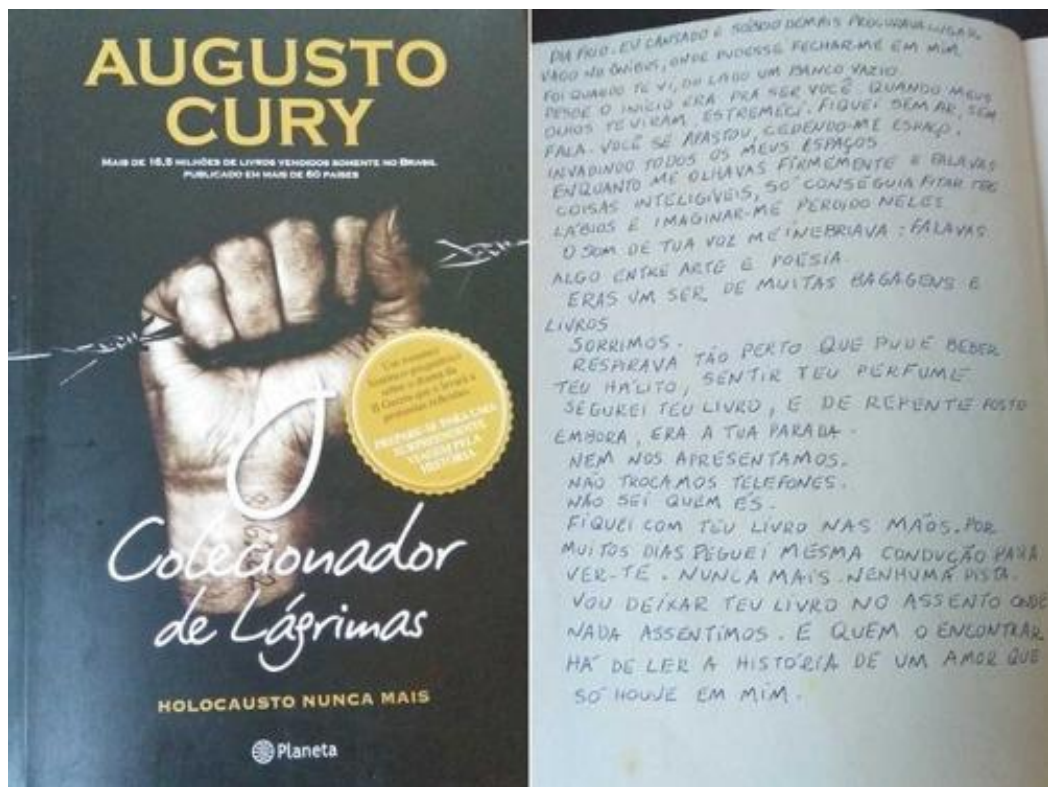 AUGUSTO
CURY
MAIS DE 16,5 MILHÕES DE LIVROS VENDIDOS SOMENTE NO BRASIL
PUBLICADO EM MAIS DE 60 PAÍSES
Um romance
histórico-psiquiátrico
sobre o drama da
II Guerra que o levará a
profundas reflexões.
PREPARE-SE PARA UMA
SURPREENDENTE
VIAGEM PELA
HISTÓRIA
O
Colecionador
de Lágrimas
HOLOCAUSTO NUNCA MAIS
Planeta
DIA FRIO. EU CANSADO E SÓBRIO DEMAIS PROCURAVA LUGAR
VAGO NO ÔNIBUS, ONDE PUDESSE FECHAR-ME EM MIM.
FOI QUANDO TE VI, DO LADO UM BANCO VAZIO.
DESDE O INÍCIO ERA PRA SER VOCÊ. QUANDO MEUS
OLHOS TE VIRAM, ESTREMECI. FIQUEI SEM AR, SEM
FALA. VOCÊ SE AFASTOU, CEDENDO-ME ESPAÇO.
INVADINDO TODOS OS MEUS ESPAÇOS
ENQUANTO ME OLHAVAS FIRMEMENTE E FALAVAS
COISAS INTELIGÍVEIS, SÓ CONSEGUIA FITAR TEUS
LÁBIOS E IMAGINAR-ME PERDIDO NELES
O SOM DE TUA VOZ ME INEBRIAVA: FALAVAS
ALGO ENTRE ARTE E POESIA
ERAS UM SER DE MUITAS BAGAGENS E
LIVROS
SORRIMOS.
RESPIRAVA TÃO PERTO QUE PUDE BEBER
TEU HÁLITO, SENTIR TEU PERFUME
SEGUREI TEU LIVRO, E DE REPENTE FOSTE
EMBORA, ERA A TUA PARADA.
NEM NOS APRESENTAMOS.
NÃO TROCAMOS TELEFONES.
NÃO SEI QUEM ÉS.
FIQUEI COM TEU LIVRO NAS MÃOS. POR
MUITOS DIAS PEGUEI MESMA CONDUÇÃO PARA
VER-TE. NUNCA MAIS. NENHUMA PISTA.
VOU DEIXAR TEU LIVRO NO ASSENTO ONDE
NADA ASSENTIMOS. E QUEM O ENCONTRAR
HÁ DE LER A HISTÓRIA DE UM AMOR QUE
SÓ HOUVE EM MIM.